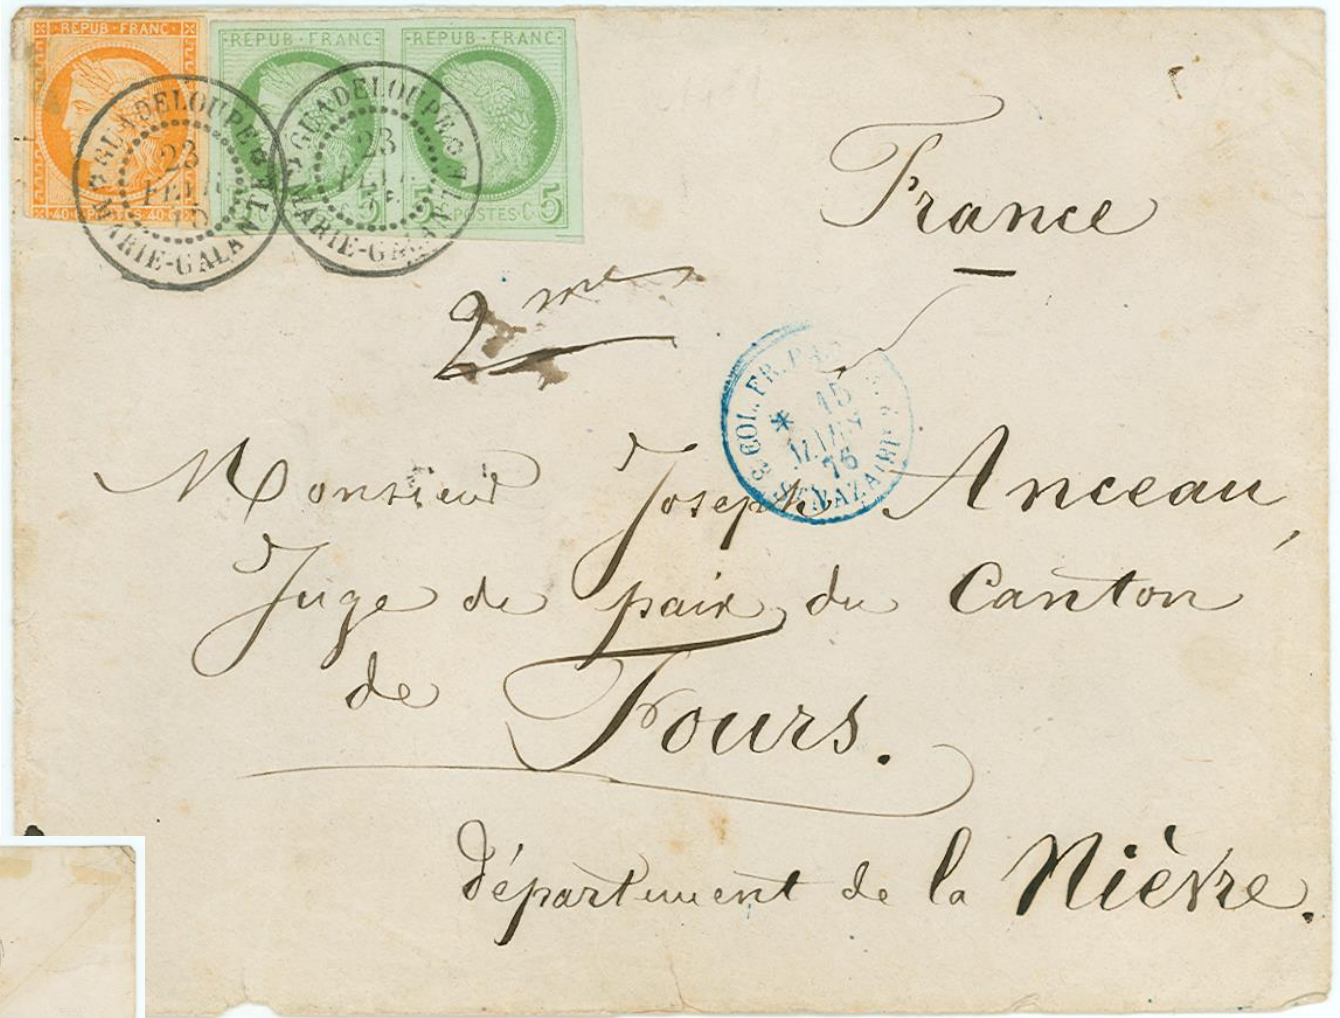 REPUB·FRANC·
40·C POSTES 40·C
REPUB·FRANC·
5
REPUB·FRANC·
5 POSTES·C·5
GUADELOUPE
23
FEVR
MARIE-GALANTE
GUADELOUPE
23
MARIE-GALANTE
France
2me
COL. FR. PAQ
15
75
ST NAZAIRE
Monsieur Joseph Anceau,
Juge de paix du Canton
de Fours.
département de la Nièvre.